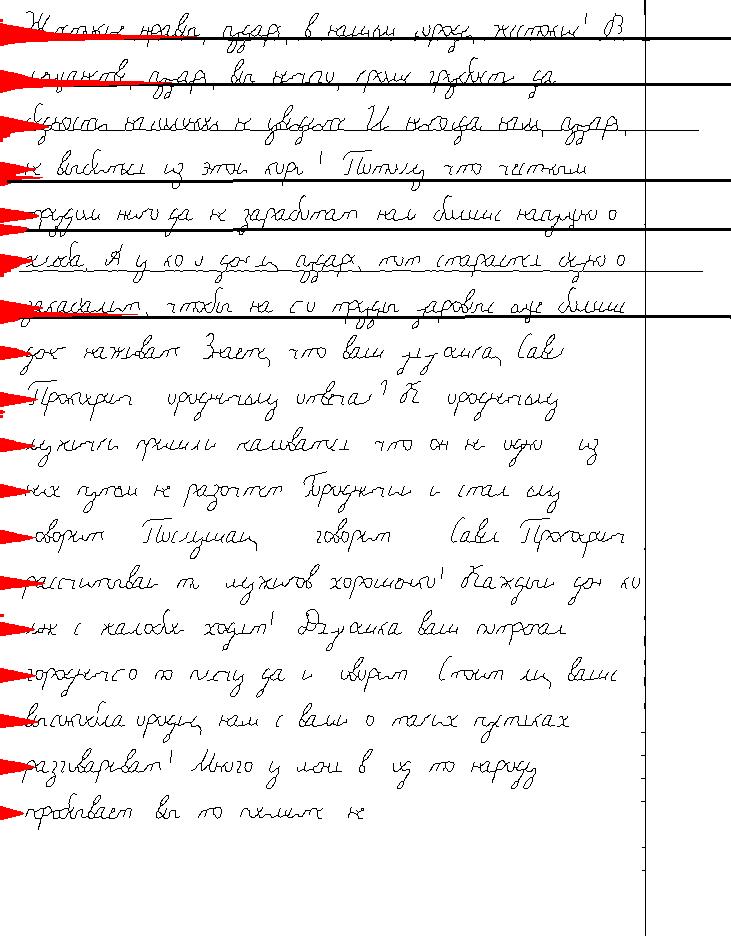 Жестокие нравы, сударь, в нашем городе, жестокие! В
мещанстве, сударь, вы ничего, кроме грубости да
бедности нагольной не увидите. И никогда нам, сударь,
не выбиться из этой коры! Потому что честным
трудом никогда не заработать нам больше насущного
хлеба. А у кого деньги, сударь, тот старается бедного
закабалить, чтобы на его труды даровые еще больше
денег наживать. Знаете, что ваш дядюшка, Савел
Прокофьич, городничему отвечал? К городничему
мужички пришли жаловаться, что он ни одного из
них путем не разочтет. Городничий и стал ему
говорить: Послушай, говорит, Савел Прокофьич,
рассчитывай ты мужиков хорошенько! Каждый день ко
мне с жалобой ходят! Дядюшка ваш потрепал
городничего по плечу да и говорит: Стоит ли, ваше
высокоблагородие, нам с вами о таких пустяках
разговаривать! Много у меня в год-то народу
перебывает; вы то поймите: не